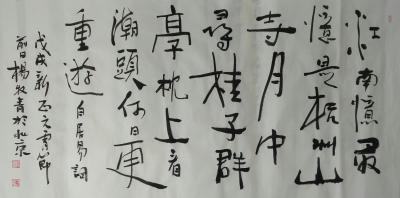 江南憶最
憶是杭州山
寺月中
尋桂子群
亭枕上看
潮頭何日更
重遊 白居易詞
戊戌新正元宵節
前日楊牧青於北京